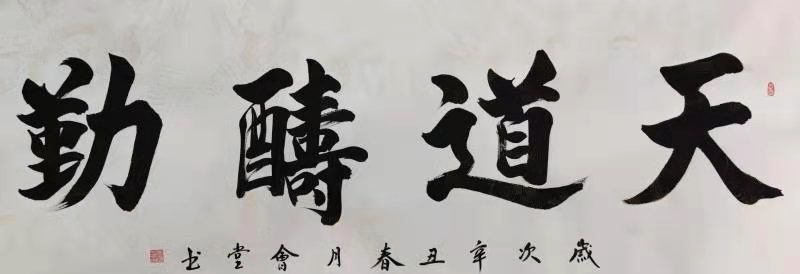 天道酬勤
歲次辛丑春月會堂书